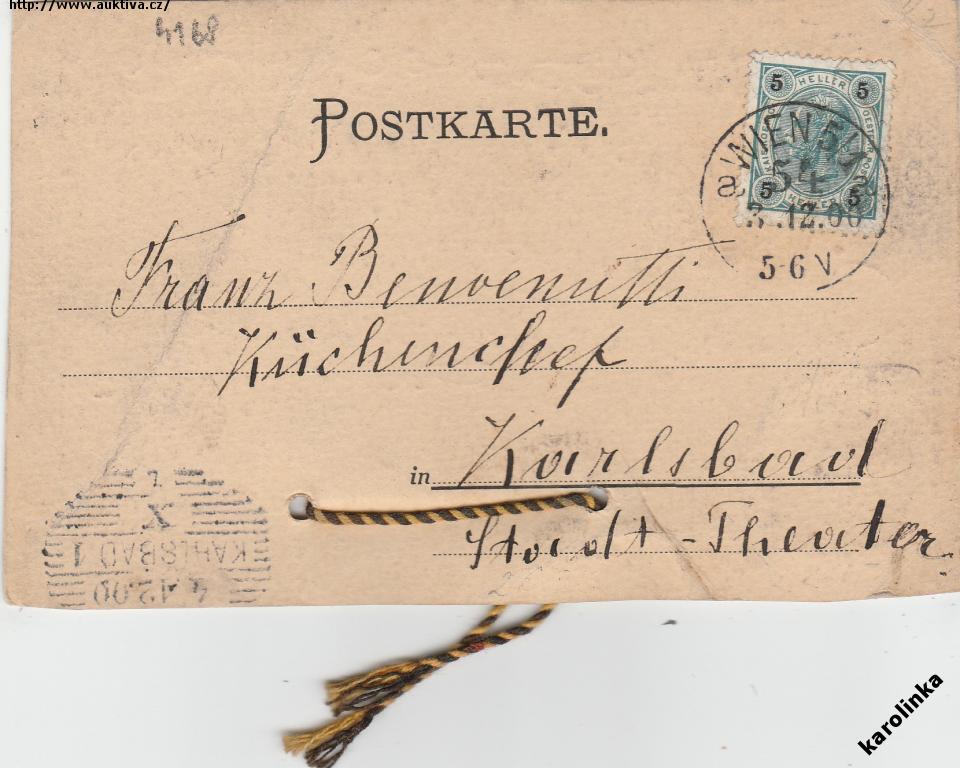 http://www.auktiva.cz/
4168
POSTKARTE.
5 HELLER 5
5 HELLER 5
WIEN 5
54
3.12.00
5-6 V
Franz Benvenutti
Küchenchef
in Karlsbad
Stadt-Theater
KARLSBAD 1
4.12.00
X
7.
karolinka